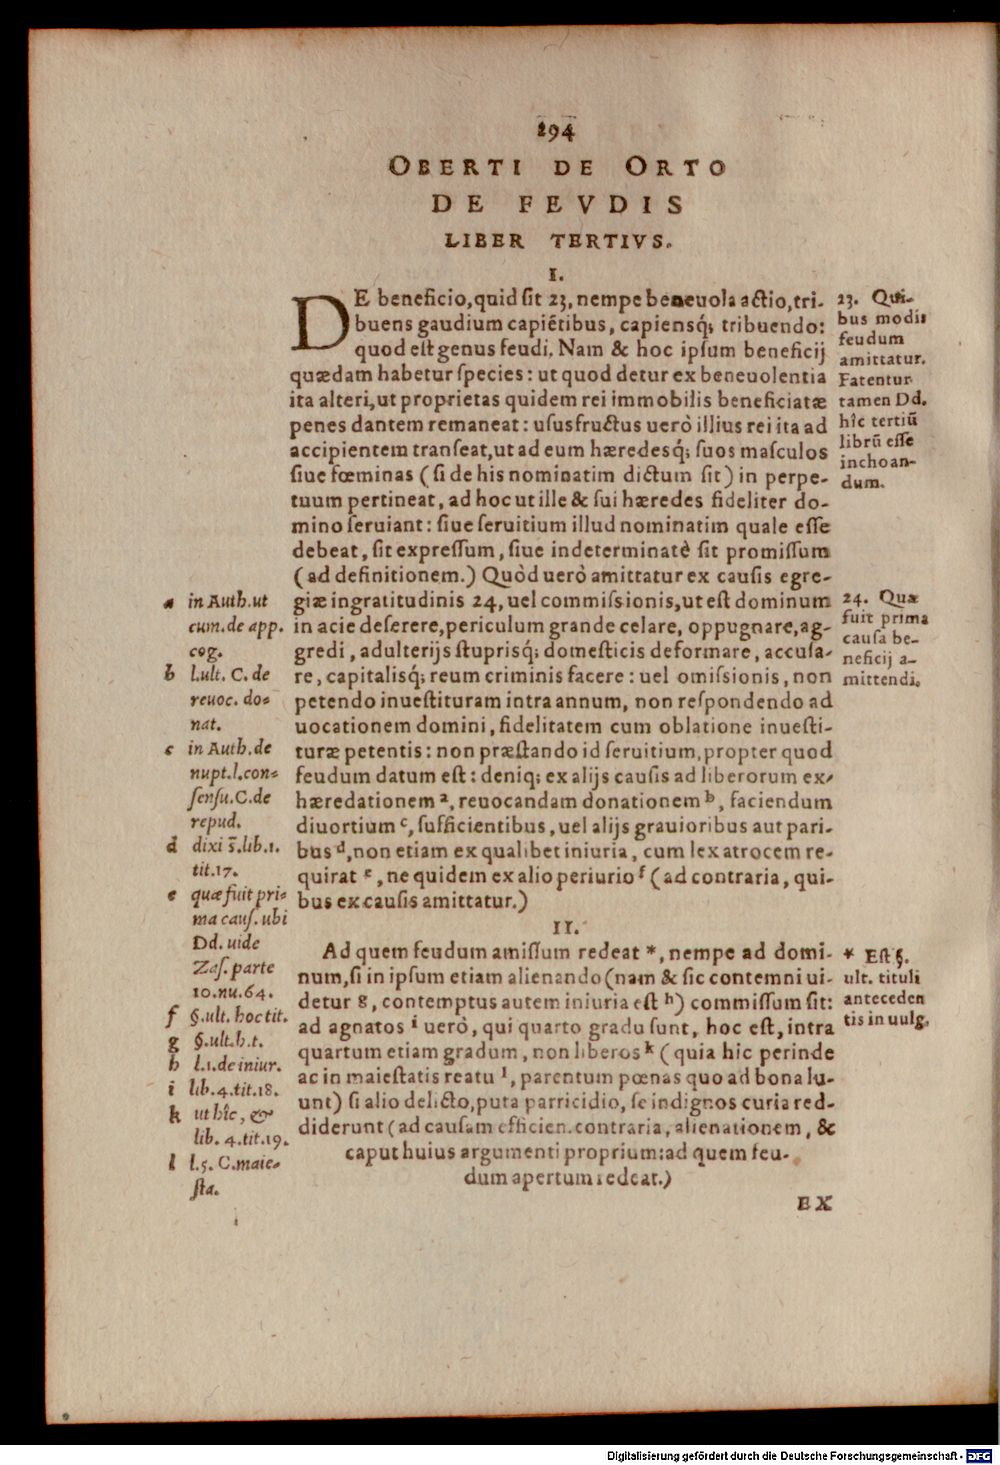 294
OBERTI DE ORTO
DE FEVDIS
LIBER TERTIVS.
I.
DE beneficio, quid ſit 23, nempe beneuola actio, tri-
buens gaudium capiẽtibus, capiensq́; tribuendo:
quod eſt genus feudi. Nam & hoc ipſum beneficij
quædam habetur ſpecies: ut quod detur ex beneuolentia
ita alteri, ut proprietas quidem rei immobilis beneficiatæ
penes dantem remaneat: uſusfructus uerò illius rei ita ad
accipientem tranſeat, ut ad eum hæredesq́; ſuos maſculos
ſiue fœminas (ſi de his nominatim dictum ſit) in perpe-
tuum pertineat, ad hoc ut ille & ſui hæredes fideliter do-
mino ſeruiant: ſiue ſeruitium illud nominatim quale eſſe
debeat, ſit expreſſum, ſiue indeterminatè ſit promiſſum
(ad definitionem.) Quòd uerò amittatur ex cauſis egre-
giæ ingratitudinis 24, uel commiſsionis, ut eſt dominum
in acie deſerere, periculum grande celare, oppugnare, ag-
gredi, adulterijs ſtuprisq́; domeſticis deformare, accuſa-
re, capitalisq́; reum criminis facere: uel omiſsionis, non
petendo inueſtituram intra annum, non reſpondendo ad
uocationem domini, fidelitatem cum oblatione inueſti-
turæ petentis: non præſtando id ſeruitium, propter quod
feudum datum eſt: deniq; ex alijs cauſis ad liberorum ex-
hæredationem ᵃ, reuocandam donationem ᵇ, faciendum
diuortium ᶜ, ſufficientibus, uel alijs grauioribus aut pari-
bus ᵈ, non etiam ex qualibet iniuria, cum lex atrocem re-
quirat ᵉ, ne quidem ex alio periurio ᶠ (ad contraria, qui-
bus ex cauſis amittatur.)
II.
Ad quem feudum amiſſum redeat *, nempe ad domi-
num, ſi in ipſum etiam alienando (nam & ſic contemni ui-
detur g, contemptus autem iniuria eſt ʰ) commiſſum ſit:
ad agnatos ⁱ uerò, qui quarto gradu ſunt, hoc eſt, intra
quartum etiam gradum, non liberos ᵏ (quia hic perinde
ac in maieſtatis reatu ˡ, parentum pœnas quo ad bona lu-
unt) ſi alio delicto, puta parricidio, ſe indignos curia red-
diderunt (ad cauſam efficien. contraria, alienationem, &
caput huius argumenti proprium: ad quem feu-
dum apertum redeat.)
EX
23. Qui-
bus modis
feudum
amittatur.
Fatentur
tamen Dd.
hîc tertiũ
librũ eſſe
inchoan-
dum.
24. Quæ
fuit prima
cauſa be-
neficij a-
mittendi.
* Eſt §.
ult. tituli
anteceden
tis in uulg.
a in Auth. ut
cum. de app.
cog.
b l. ult. C. de
reuoc. do-
nat.
c in Auth. de
nupt. l. con-
ſenſu. C. de
repud.
d dixi s̃. lib. 1.
tit. 17.
e quæ fuit pri-
ma cauſ. ubi
Dd. uide
Zaſ. parte
10. nu. 64.
f §. ult. hoc tit.
g §. ult. h. t.
h l. 1. de iniur.
i lib. 4. tit. 18.
k ut hîc, &
lib. 4. tit. 19.
l l. 5. C. maie-
ſta.
Digitalisierung gefördert durch die Deutsche Forschungsgemeinschaft - DFG